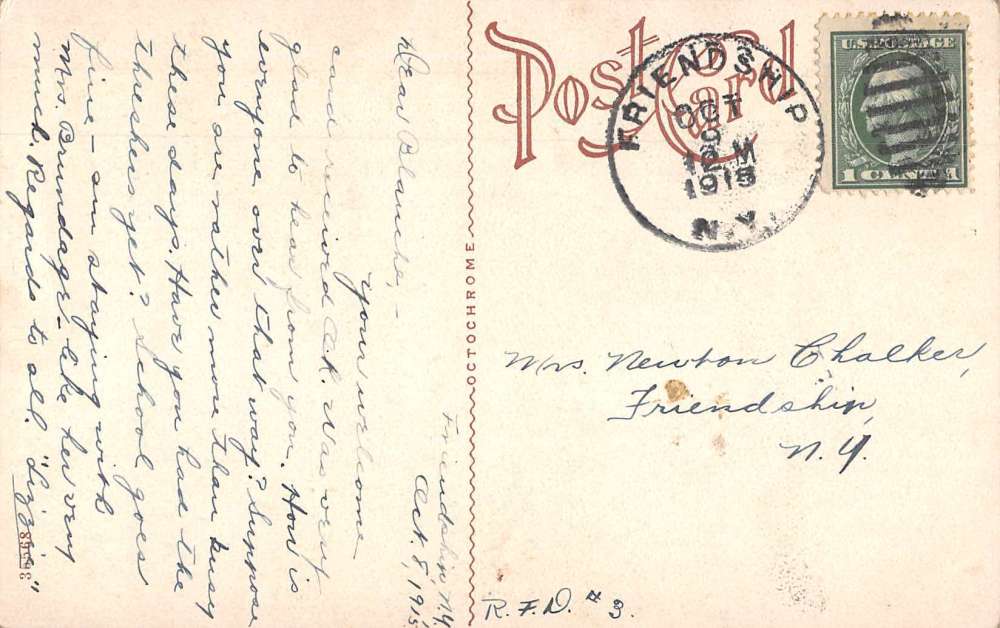 Friendship N.Y.
Oct. 8, 1915
Dear Blanche, -
Your welcome
card received O.K. Was very
glad to hear from you. How is
everyone over that way? Suppose
you are rather more than busy
these days. Have you had the
threshers yet? School goes
fine - am staying with
Mrs. Brundage - like her very
much. Regards to all. "Lizzie"
36568
OCTOCHROME
Post Card
FRIENDSHIP
OCT
9
12 M
1915
N.Y.
U.S. POSTAGE
1 CENT 1
Mrs. Newton Chalker,
Friendship,
N.Y.
R.F.D. #3.